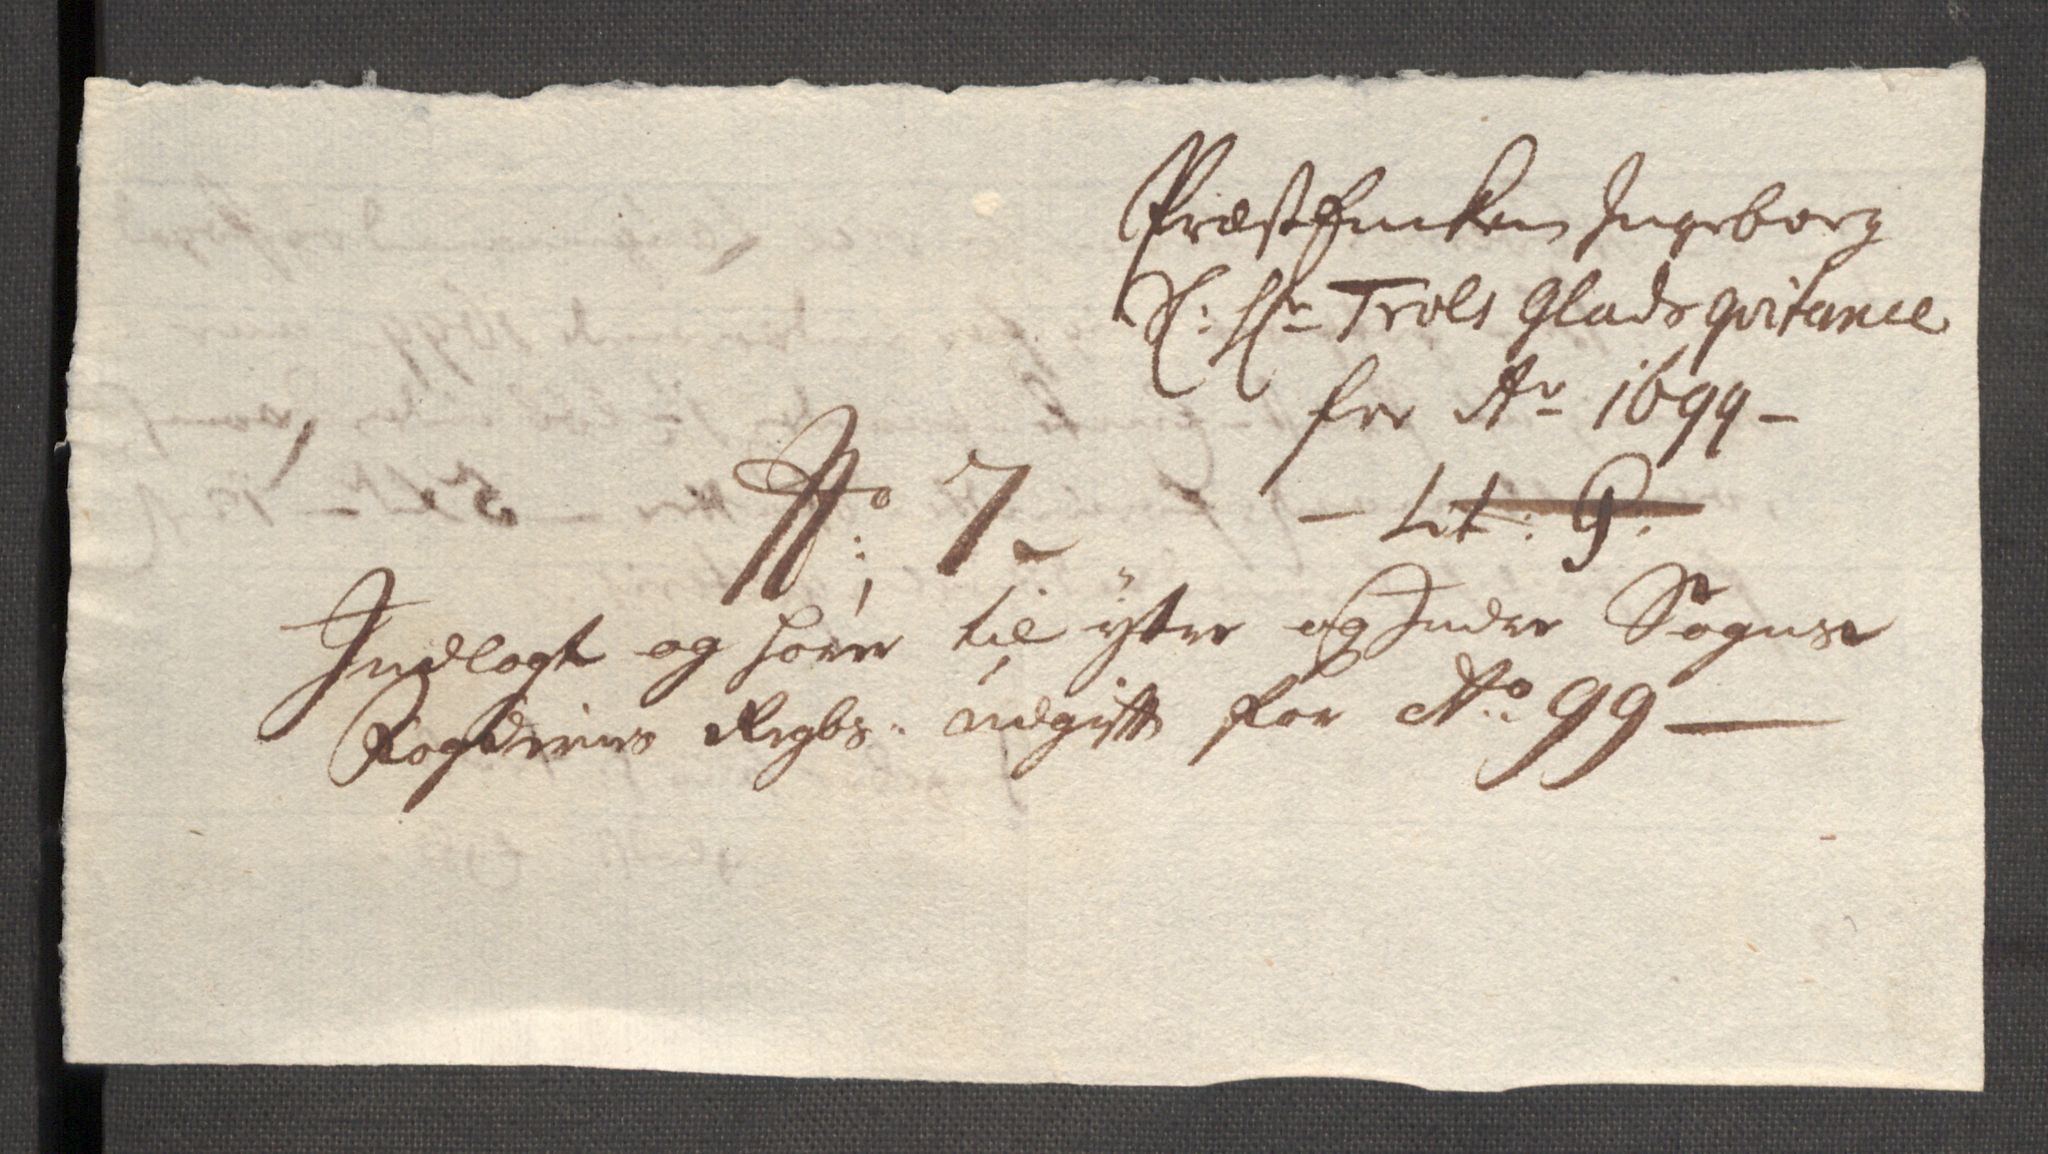 Præst Enken Ingeborg
S: Hr Trols Glads qvitance
for Ao 1699 –
– Lit: P.
No: 7
Indlagt og hörer til ÿtre og Indre Sogns
Fogderies Regbs: udgifft for Ao: 99 —